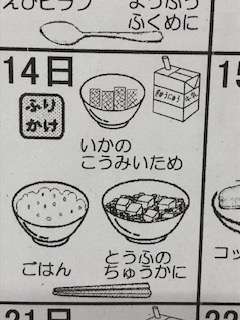 えびピラフ
ようふう
ふくめに
14日
15
ふり
かけ
ぎゅうにゅう
いかの
こうみいため
ごはん
とうふの
ちゅうかに
コッ
21日
22